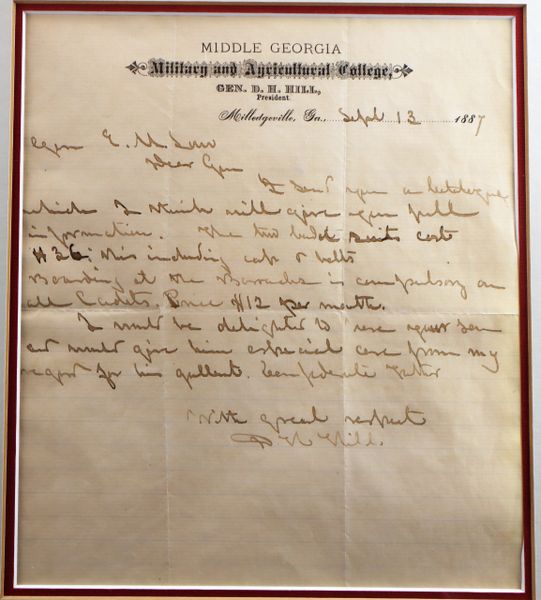 MIDDLE GEORGIA
Military and Agricultural College,
GEN. D. H. HILL,
President.
Milledgeville, Ga., Sept 13 1887
E. M. Law
Dear Gen
I send you a Catalogue
which I think will give you full
information. The two suits cost
$36, this including cap & belts
Boarding at the Barracks is compulsory on
all Cadets. Price $12 per month.
I would be delighted to see your son
and would give him especial care from my
regard for his gallant Confederate father
With great respect
D H Hill